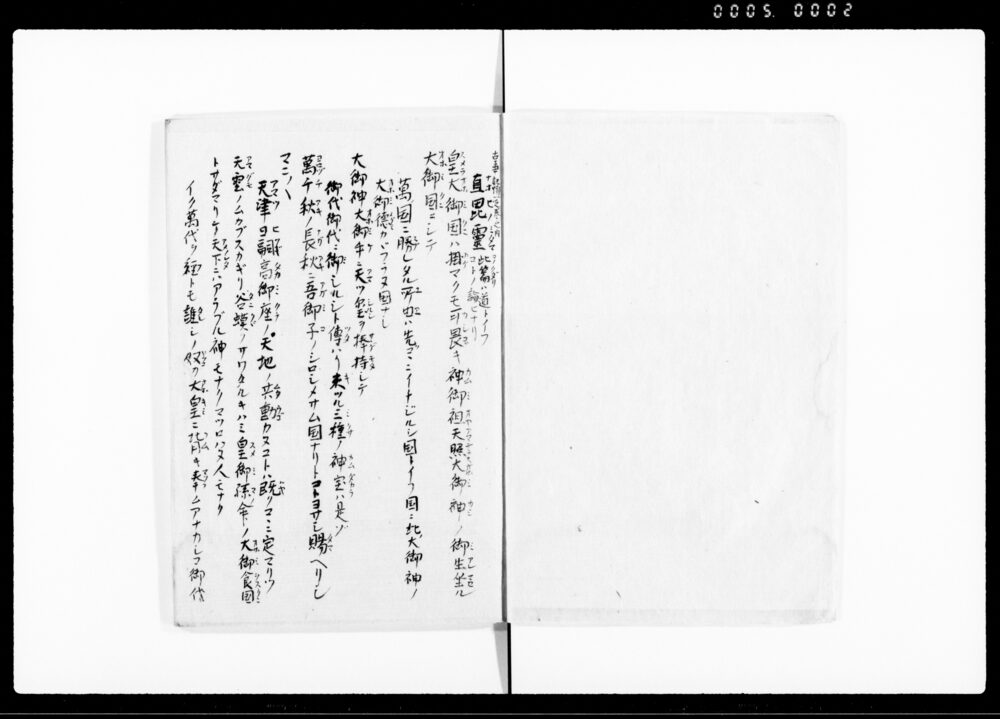 0005. 0002
古事記傳一之巻之内
直毘靈 此篇ハ道トイフコトノ論ヒナリ
皇大御国ハ掛マクモ可畏キ神御祖天照大御神ノ御生坐ル
大御国ニシテ
萬国ニ勝レタル所由ハ先ヅコヽニイチジルシ国トイフ国ニ此大御神ノ
大御徳カヾフラヌ国ナシ
大御神大御手ニ天ツ璽ヲ捧持シテ
御代御代ニ御シルシト傳ハリ来ツル三種ノ神宝ハ是ゾ
萬千秋ノ長秋ニ吾御子ノシロシメサム国ナリトコトヨサシ賜ヘリシ
マニ〱
天津日嗣高御座ノ天地ノ共動カヌコトハ既クコヽニ定マリツ
天雲ノムカブスカギリ谷蟆ノサワタルキハミ皇御孫命ノ大御食国
トサダマリテ天下ニハアラブル神モナクマツロハヌ人モナク
イク萬代ヲ経トモ誰シノ奴カ大皇ニ背キ奉ムアナカシコ御代